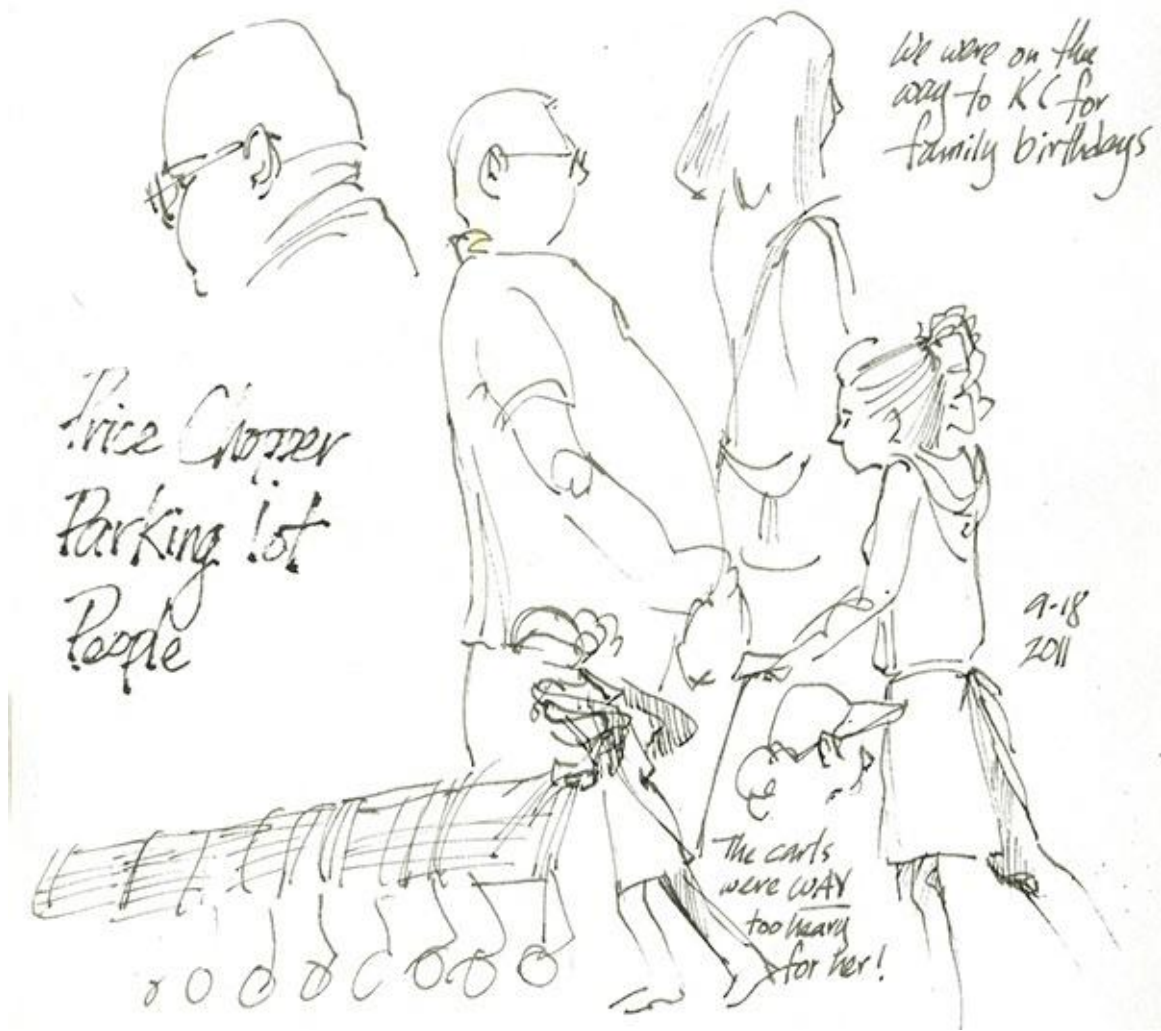 We were on the
way to KC for
family birthdays
Price Chopper
Parking lot
People
9-18
2011
The carts
were WAY
too heavy
for her!